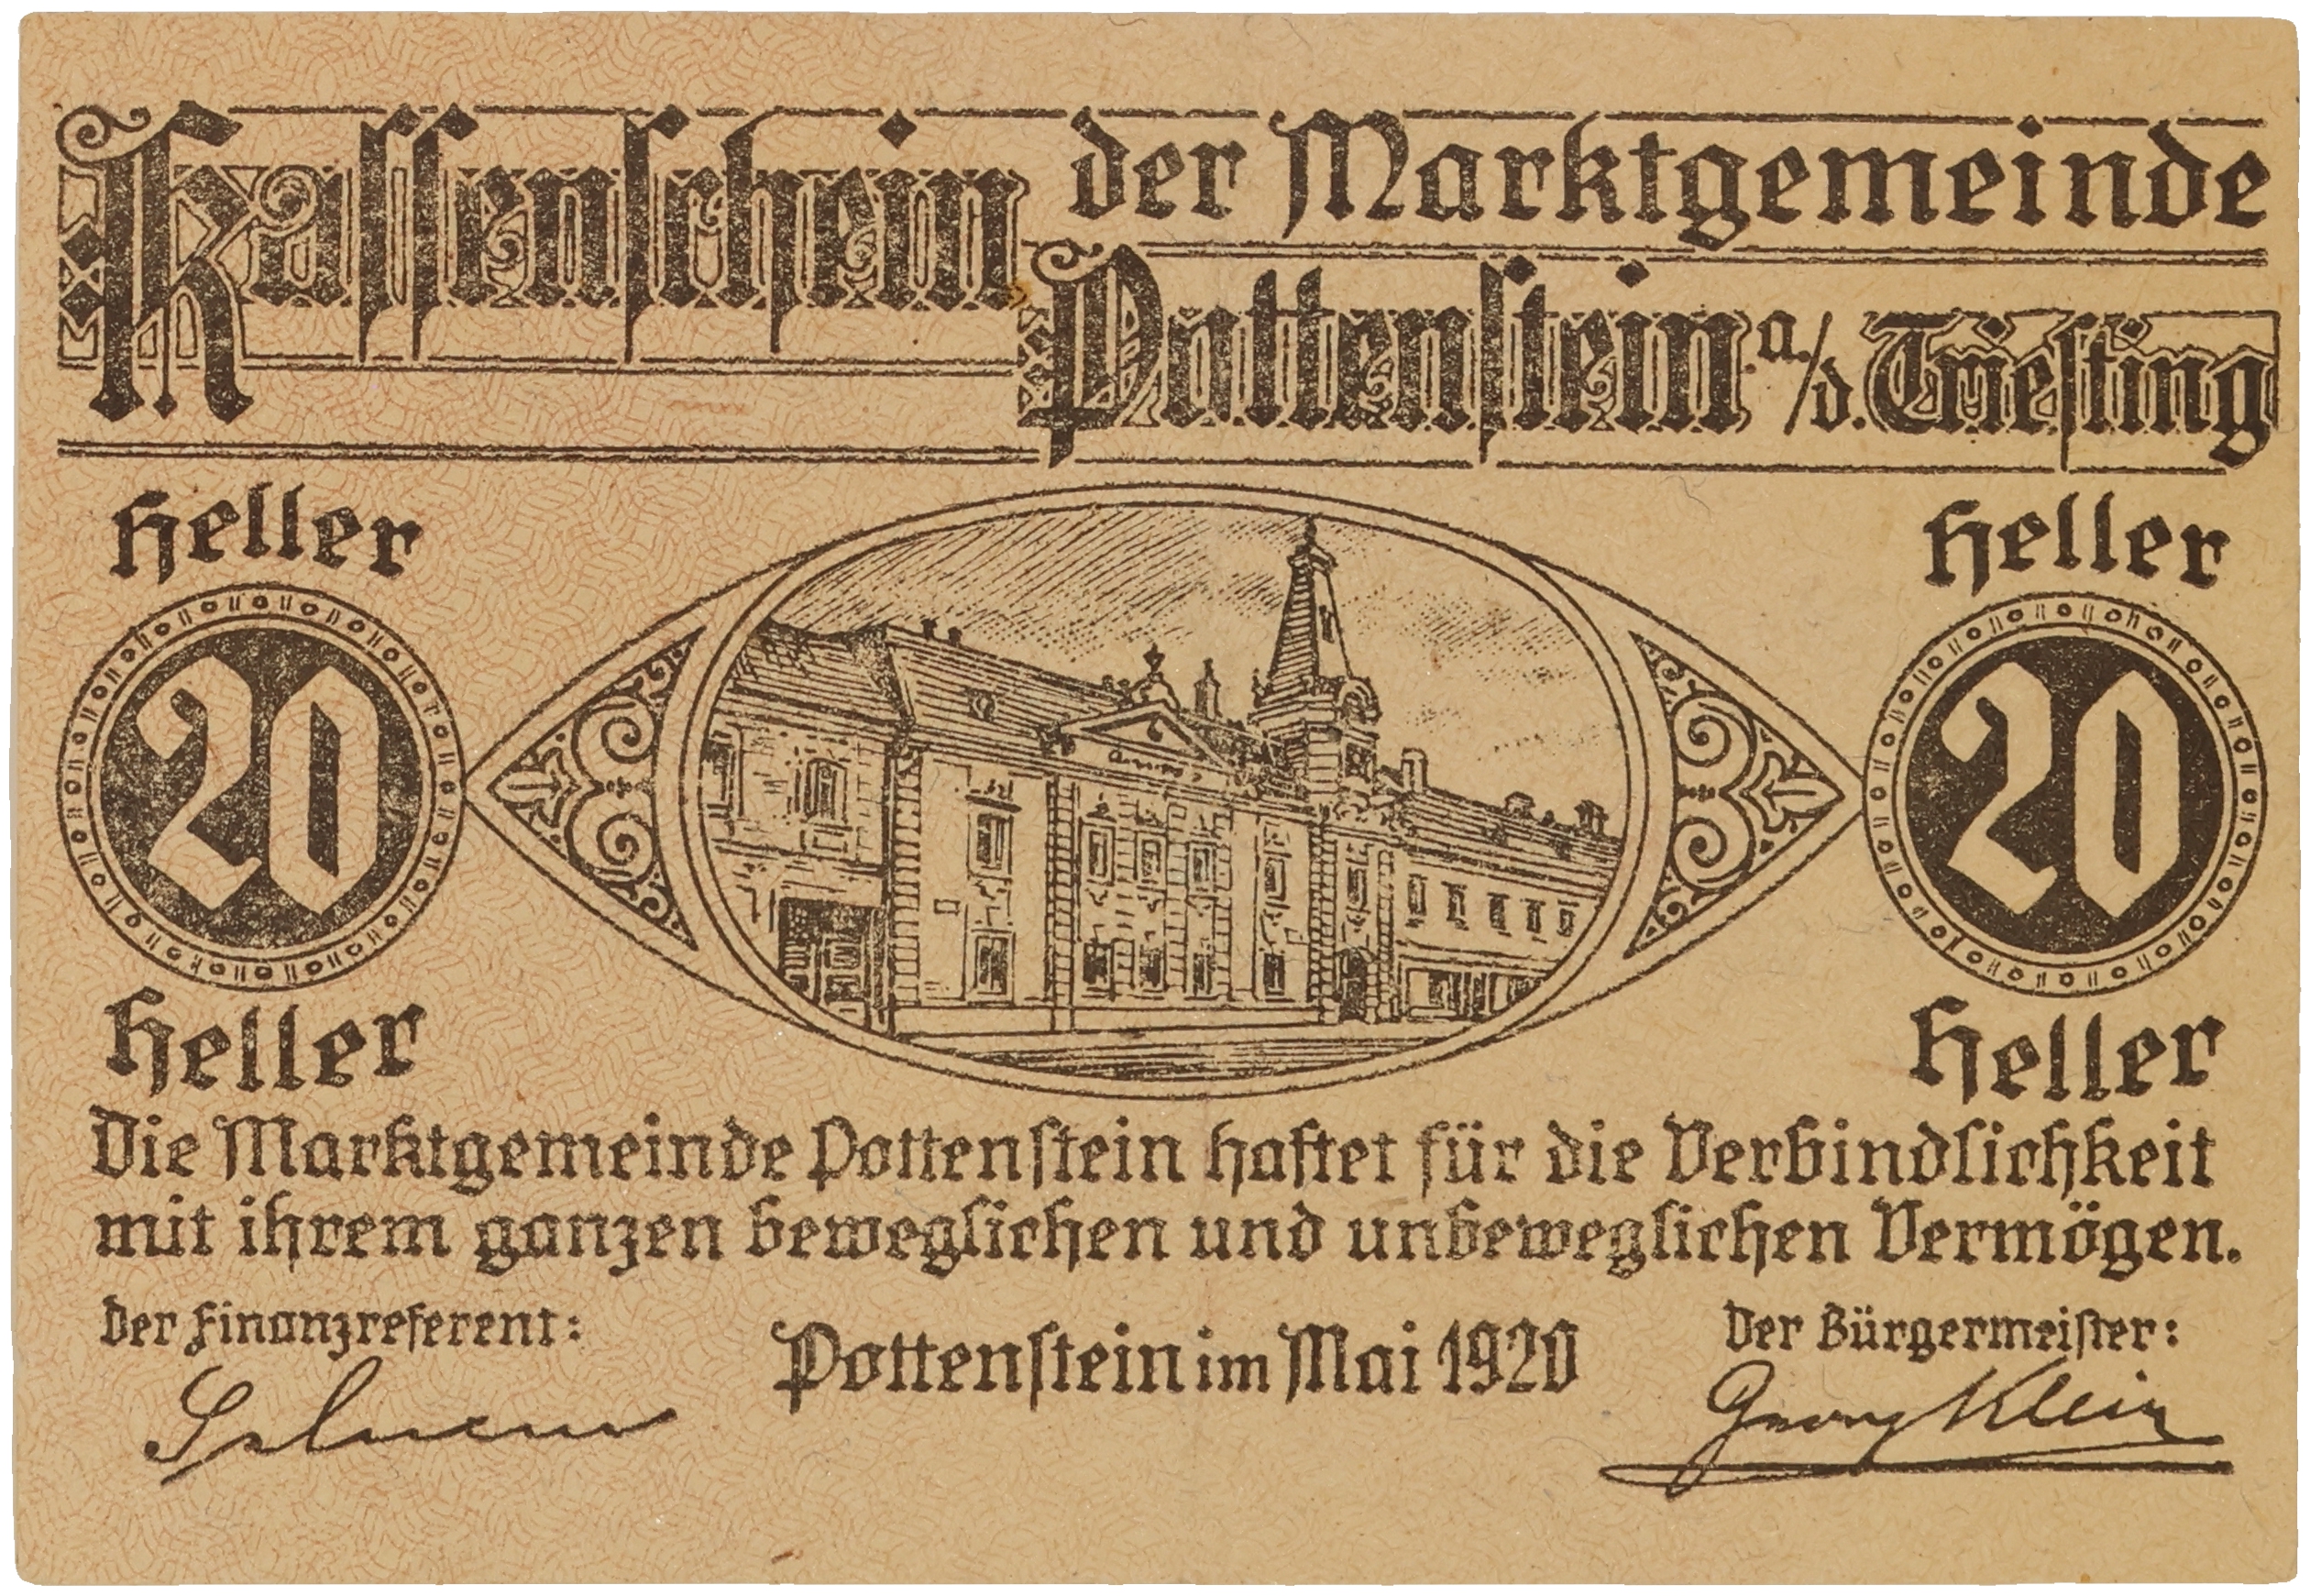 Kassenschein der Marktgemeinde
Pottenstein a./d. Triesting
Heller
Heller
20
20
Heller
Heller
Die Marktgemeinde Pottenstein haftet für die Verbindlichkeit
mit ihrem ganzen beweglichen und unbeweglichen Vermögen.
Der Finanzreferent:
Pottenstein im Mai 1920
Der Bürgermeister:
Georg Klein